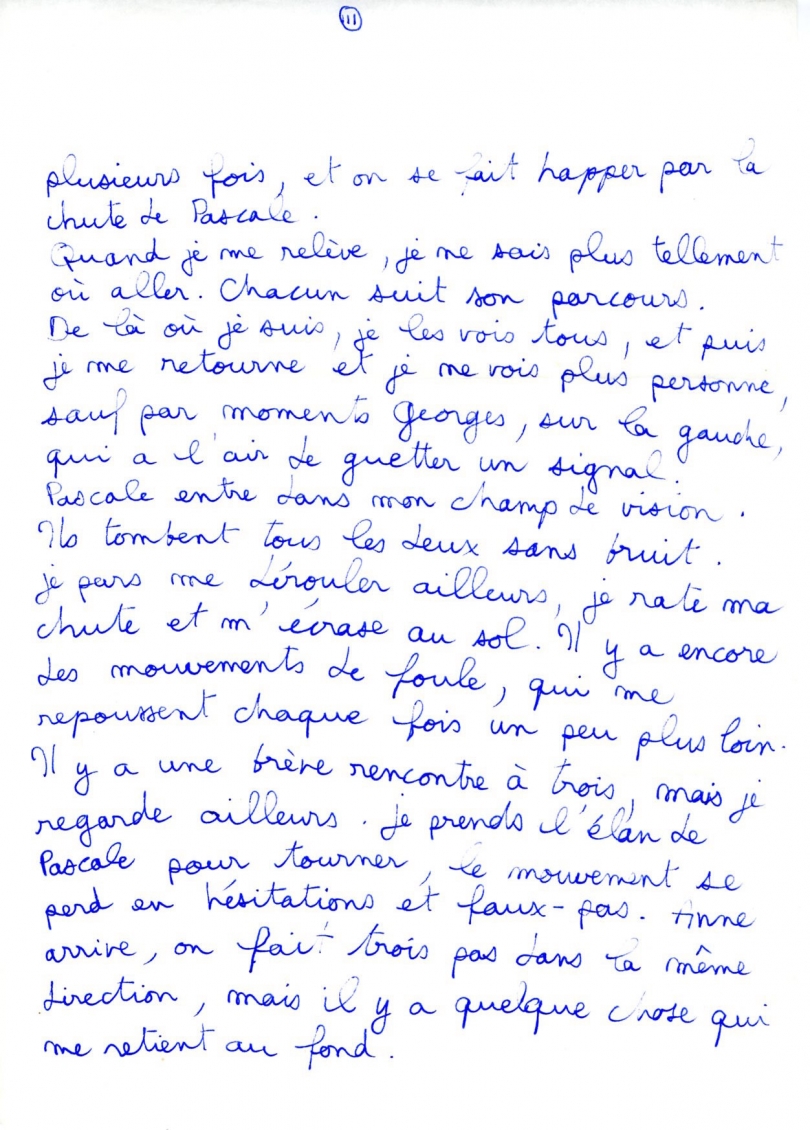 11
plusieurs fois, et on se fait happer par la
chute de Pascale.
Quand je me relève, je ne sais plus tellement
où aller. Chacun suit son parcours.
De là où je suis, je les vois tous, et puis
je me retourne et je ne vois plus personne,
sauf par moments Georges, sur la gauche,
qui a l'air de guetter un signal.
Pascale entre dans mon champ de vision.
Ils tombent tous les deux sans bruit.
je pars me dérouler ailleurs, je rate ma
chute et m'écrase au sol. Il y a encore
des mouvements de foule, qui me
repoussent chaque fois un peu plus loin.
Il y a une brève rencontre à trois, mais je
regarde ailleurs. je prends l'élan de
Pascale pour tourner, le mouvement se
perd en hésitations et faux-pas. Anne
arrive, on fait trois pas dans la même
direction, mais il y a quelque chose qui
me retient au fond.